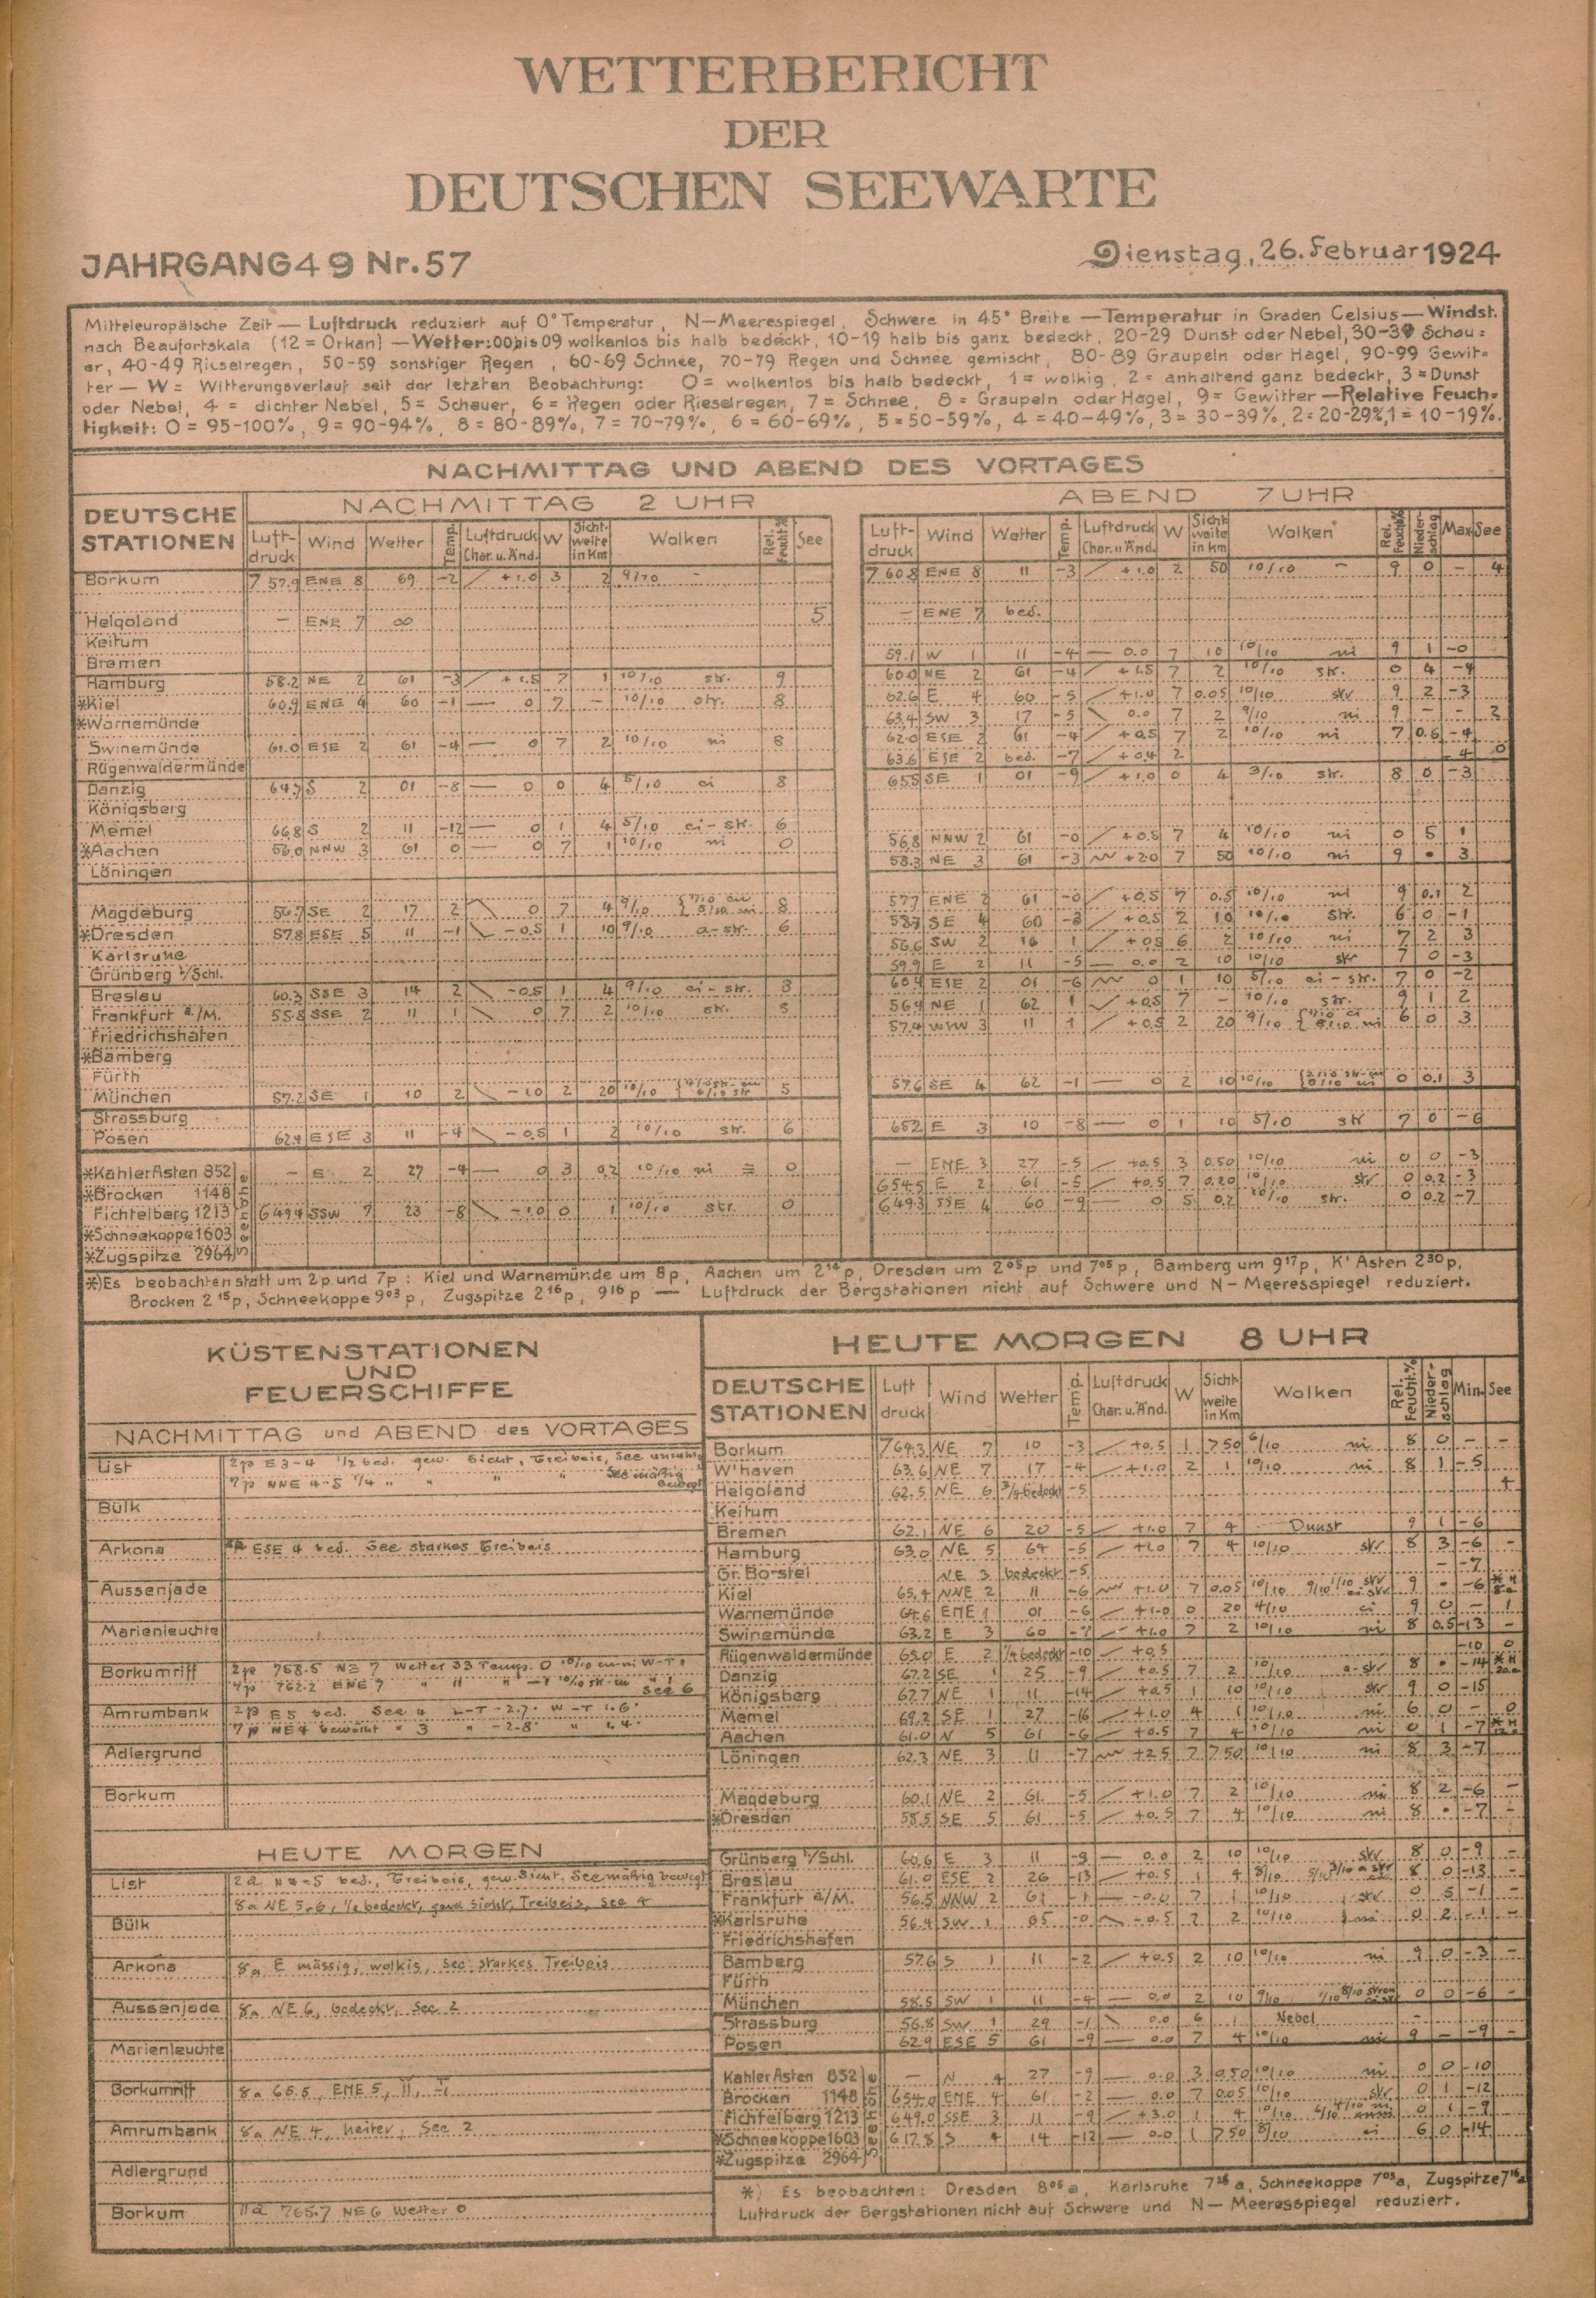 WETTERBERICHT
DER
DEUTSCHEN SEEWARTE
JAHRGANG 49 Nr. 57
Dienstag, 26. Februar 1924
Mitteleuropäische Zeit — Luftdruck reduziert auf 0° Temperatur, N—Meerespiegel, Schwere in 45° Breite — Temperatur in Graden Celsius — Windst.
nach Beaufortskala (12 = Orkan) — Wetter: 00 bis 09 wolkenlos bis halb bedeckt, 10-19 halb bis ganz bedeckt, 20-29 Dunst oder Nebel, 30-39 Schau=
er, 40-49 Rieselregen, 50-59 sonstiger Regen, 60-69 Schnee, 70-79 Regen und Schnee gemischt, 80-89 Graupeln oder Hagel, 90-99 Gewit=
ter — W = Witterungsverlauf seit der letzten Beobachtung: 0 = wolkenlos bis halb bedeckt, 1 = wolkig, 2 = anhaltend ganz bedeckt, 3 = Dunst
oder Nebel, 4 = dichter Nebel, 5 = Schauer, 6 = Regen oder Rieselregen, 7 = Schnee, 8 = Graupeln oder Hagel, 9 = Gewitter — Relative Feuch=
tigkeit: 0 = 95-100%, 9 = 90-94%, 8 = 80-89%, 7 = 70-79%, 6 = 60-69%, 5 = 50-59%, 4 = 40-49%, 3 = 30-39%, 2 = 20-29%, 1 = 10-19%.
NACHMITTAG UND ABEND DES VORTAGES
DEUTSCHE STATIONEN
NACHMITTAG 2 UHR
Luft-druck Wind Wetter Temp. Luftdruck Char. u. Änd. W Sicht-weite in Km Wolken Rel. Feucht% See
ABEND 7 UHR
Luft-druck Wind Wetter Temp. Luftdruck Char. u. Änd. W Sicht-weite in km Wolken Rel. Feucht% Nieder-schlag Max See
Borkum 757.9 ENE 8 69 -2 +1.0 3 2 9/10 - 760.8 ENE 8 11 -3 +1.0 2 50 10/10 - 9 0 - 4
Helgoland - ENE 7 ∞ 5 - ENE 7 bed.
Keitum
Bremen 59.1 W 1 11 -4 — 0.0 7 10 10/10 ni 9 1 -0
Hamburg 58.2 NE 2 61 -3 +1.5 7 1 10/10 str. 9 60.0 NE 2 61 -4 +1.5 7 2 10/10 str. 0 4 -4
*Kiel 60.9 ENE 4 60 -1 — 0 7 - 10/10 str. 8 62.6 E 4 60 -5 +1.0 7 0.05 10/10 str 9 2 -3
*Warnemünde 63.4 SW 3 17 -5 0.0 7 2 9/10 ni 9 - - 2
Swinemünde 61.0 ESE 2 61 -4 — 0 7 2 10/10 ni 8 62.0 ESE 2 61 -4 +0.5 7 2 10/10 ni 7 0.6 -4
Rügenwaldermünde 63.6 ESE 2 bed. -7 +0.4 2 4 0
Danzig 64.7 S 2 01 -8 — 0 0 4 5/10 ci 8 65.5 SE 1 01 -9 +1.0 0 4 3/10 str. 8 0 -3
Königsberg
Memel 66.8 S 2 11 -12 — 0 1 4 5/10 ci-str. 6
*Aachen 56.0 NNW 3 61 0 — 0 7 1 10/10 ni 0 56.8 NNW 2 61 -0 +0.5 7 4 10/10 ni 0 5 1
Löningen 58.3 NE 3 61 -3 +2.0 7 50 10/10 ni 9 • 3
Magdeburg 56.7 SE 2 17 2 0 7 4 9/10 8 57.7 ENE 2 61 -0 +0.5 7 0.5 10/10 ni 9 0.1 2
*Dresden 57.8 ESE 5 11 -1 -0.5 1 10 9/10 a-str. 6 58.3 SE 4 60 -3 +0.5 2 10 10/10 str. 6 0 -1
Karlsruhe 56.6 SW 2 16 1 +0.5 6 2 10/10 ni 7 2 3
Grünberg i/Schl. 59.9 E 2 11 -5 — 0.0 2 10 10/10 str 7 0 -3
Breslau 60.3 SSE 3 14 2 -0.5 1 4 9/10 ci-str. 8 60.4 ESE 2 01 -6 0 1 10 5/10 ci-str. 7 0 -2
Frankfurt a./M. 55.8 SSE 2 11 1 0 7 2 10/10 str. 8 56.4 NE 1 62 1 +0.5 7 - 10/10 str. 9 1 2
Friedrichshafen 57.4 WNW 3 11 1 +0.5 2 20 9/10 6 0 3
*Bamberg
Fürth
München 57.2 SE 1 10 2 -1.0 2 20 10/10 5 57.6 SE 4 62 -1 — 0 2 10 10/10 0 0.1 3
Strassburg
Posen 62.4 ESE 3 11 -4 -0.5 1 2 10/10 str. 6 65.2 E 3 10 -8 — 0 1 10 5/10 str 7 0 -6
Seehöhe
*Kahler Asten 852 - E 2 27 -4 — 0 3 0.2 10/10 ni ≡ 0 — ENE 3 27 -5 +0.5 3 0.50 10/10 ni 0 0 -3
*Brocken 1148 654.5 E 2 61 -5 +0.5 7 0.20 10/10 str 0 0.2 -3
Fichtelberg 1213 649.4 SSW 7 23 -8 -1.0 0 1 10/10 str. 0 649.3 SSE 4 60 -9 — 0 5 0.2 10/10 str. 0 0.2 -7
*Schneekoppe 1603
*Zugspitze 2964
*) Es beobachten statt um 2p und 7p: Kiel und Warnemünde um 8p, Aachen um 2 14 p, Dresden um 2 05 p und 7 05 p, Bamberg um 9 17 p, K' Asten 2 30 p,
Brocken 2 15 p, Schneekoppe 9 03 p, Zugspitze 2 16 p, 9 16 p — Luftdruck der Bergstationen nicht auf Schwere und N—Meeresspiegel reduziert.
KÜSTENSTATIONEN
UND
FEUERSCHIFFE
NACHMITTAG und ABEND des VORTAGES
List 2p E 3-4 1/2 bed. gew. Sicht, Treibeis, See unruhig
7p NNE 4-5 1/4 " " " See mäßig bewegt
Bülk
Arkona ESE 4 bed. See starkes Treibeis
Aussenjade
Marienleuchte
Borkumriff 2p 758.5 NE 7 Wetter 33 Temp. 0
7p 762.2 ENE 7 " 11 " See 6
Amrumbank 2p E 5 bed. See 4 L-T -2.7. W-T 1.6
7p NE 4 bewölkt " 3 " -2.8 " 1.4
Adlergrund
Borkum
HEUTE MORGEN
List bed., Treibeis, gew. Sicht, See mäßig bewegt
8a NE 5-6, 1/2 bedeckt, gew. Sicht, Treibeis, See 4
Bülk
Arkona 8a E mässig, wolkig, See starkes Treibeis
Aussenjade 8a NE 6, bedeckt, See 2
Marienleuchte
Borkumriff 8a 65.5, ENE 5, 11, -1
Amrumbank 8a NE 4, heiter, See 2
Adlergrund
Borkum 11a 765.7 NE 6 Wetter 0
HEUTE MORGEN 8 UHR
DEUTSCHE STATIONEN Luft druck Wind Wetter Temp. Luftdruck Char. u. Änd. W Sicht-weite in Km Wolken Rel. Feucht.% Nieder-schlag Min. See
Borkum 764.3 NE 7 10 -3 +0.5 1 >50 6/10 ni 8 0 - -
W'haven 63.6 NE 7 17 -4 +1.0 2 1 10/10 ni 8 1 -5
Helgoland 62.5 NE 6 3/4 bedeckt -5 4
Keitum
Bremen 62.1 NE 6 20 -5 +1.0 7 4 Dunst 9 1 -6
Hamburg 63.0 NE 5 64 -5 +1.0 7 4 10/10 str 8 3 -6 -
Gr. Borstel NE 3 bedeckt -5 - -7
Kiel 65.4 NNE 2 11 -6 +1.0 7 0.05 10/10 9 • -6
Warnemünde 64.6 ENE 1 01 -6 +1.0 0 20 4/10 ci 9 0 - 1
Swinemünde 63.2 E 3 60 -7 +1.0 7 2 10/10 ni 8 0.5 -13 -
Rügenwaldermünde 65.0 E 2 1/4 bedeckt -10 +0.5 -10 0
Danzig 67.2 SE 1 25 -9 +0.5 7 2 10/ a-str 8 • -14
Königsberg 67.7 NE 1 11 -14 +0.5 1 10 10/10 str 9 0 -15
Memel 69.2 SE 1 27 -16 +1.0 4 1 10/10 ni 6 0 - 0
Aachen 61.0 N 5 61 -6 +0.5 7 4 10/10 ni 0 1 -7
Löningen 62.3 NE 3 11 -7 +2.5 7 >50 10/10 ni 8 3 -7
Magdeburg 60.1 NE 2 61 -5 +1.0 7 2 10/10 ni 8 2 -6 -
*Dresden 58.5 SE 5 61 -5 +0.5 7 4 10/10 ni 8 • -7 -
Grünberg i/Schl. 60.6 E 3 11 -9 — 0.0 2 10 10/10 str 8 0 -9 -
Breslau 61.0 ESE 2 26 -13 +0.5 1 4 8/10 8 0 -13 -
Frankfurt a/M. 56.5 NNW 2 61 -1 -0.0 7 1 10/10 str 0 5 -1 -
*Karlsruhe 56.4 SW 1 05 -0 -0.5 7 2 10/10 ni 0 2 -1 -
Friedrichshafen
Bamberg 57.6 S 1 11 -2 +0.5 2 10 10/10 ni 9 0 -3 -
Fürth
München 58.5 SW 1 11 -4 — 0.0 2 10 9/10 0 0 -6 -
Strassburg 56.8 SW 1 29 -1 0.0 6 1 Nebel -
Posen 62.9 ESE 5 61 -9 — 0.0 7 4 10/10 ni 9 - -9 -
Seehöhe
Kahler Asten 852 — N 4 27 -9 — 0.0 3 0.50 10/10 ni 0 0 -10
Brocken 1148 654.0 ENE 4 61 -2 — 0.0 7 0.05 10/10 str 0 1 -12
Fichtelberg 1213 649.0 SSE 3 11 -9 +3.0 1 4 10/10 0 1 -9
*Schneekoppe 1603 617.8 S 4 14 -12 — 0.0 1 >50 8/10 ci 6 0 -14
*Zugspitze 2964
*) Es beobachten: Dresden 8 05 a, Karlsruhe 7 36 a, Schneekoppe 7 03 a, Zugspitze 7 16 a
Luftdruck der Bergstationen nicht auf Schwere und N—Meeresspiegel reduziert.